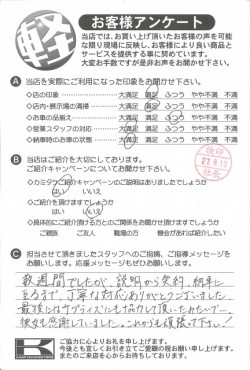 軽
お客様アンケート
当店では、お買い上げ頂いたお客様の声を可能
な限り現場に反映し、お客様により良い商品と
サービスを提供する事に努めています。
大変お手数ですが是非お声をお聞かせ下さい。
A 当店を実際にご利用になった印象をお聞かせ下さい。
◇店の印象 大満足 満足 ふつう やや不満 不満
◇店内・展示場の清掃 大満足 満足 ふつう やや不満 不満
◇お車の品揃え 大満足 満足 ふつう やや不満 不満
◇営業スタッフの対応 大満足 満足 ふつう やや不満 不満
◇納車時のお車の状態 大満足 満足 ふつう やや不満 不満
B 当店はご紹介を大切にしております。
ご紹介キャンペーンについてお聞かせ下さい。
◇カミタケご紹介キャンペーンのご説明はありましたでしょうか
はい いいえ
◇ご紹介を頂けますでしょうか
はい いいえ
◇具体的にご紹介頂ける方とのご関係をお聞かせ頂けますでしょうか
ご親族 ご友人 職場の方 機会があれば紹介したい
C 担当させて頂きますスタッフへのご指摘、ご指導メッセージを
お願いします。応援メッセージもぜひお願いします。
数週間でしたが、説明から契約、納車に
至るまで、丁寧な対応ありがとうございました。
最後にはサプライズにも協力して頂いたみたいで…
彼女も感謝していました。これからも頑張って下さい!
K
ご協力に心よりお礼を申し上げます。
今後とも宜しくお引き立てご愛顧の程お願い申し上げます。
またのご来店を心からお待ちしております。